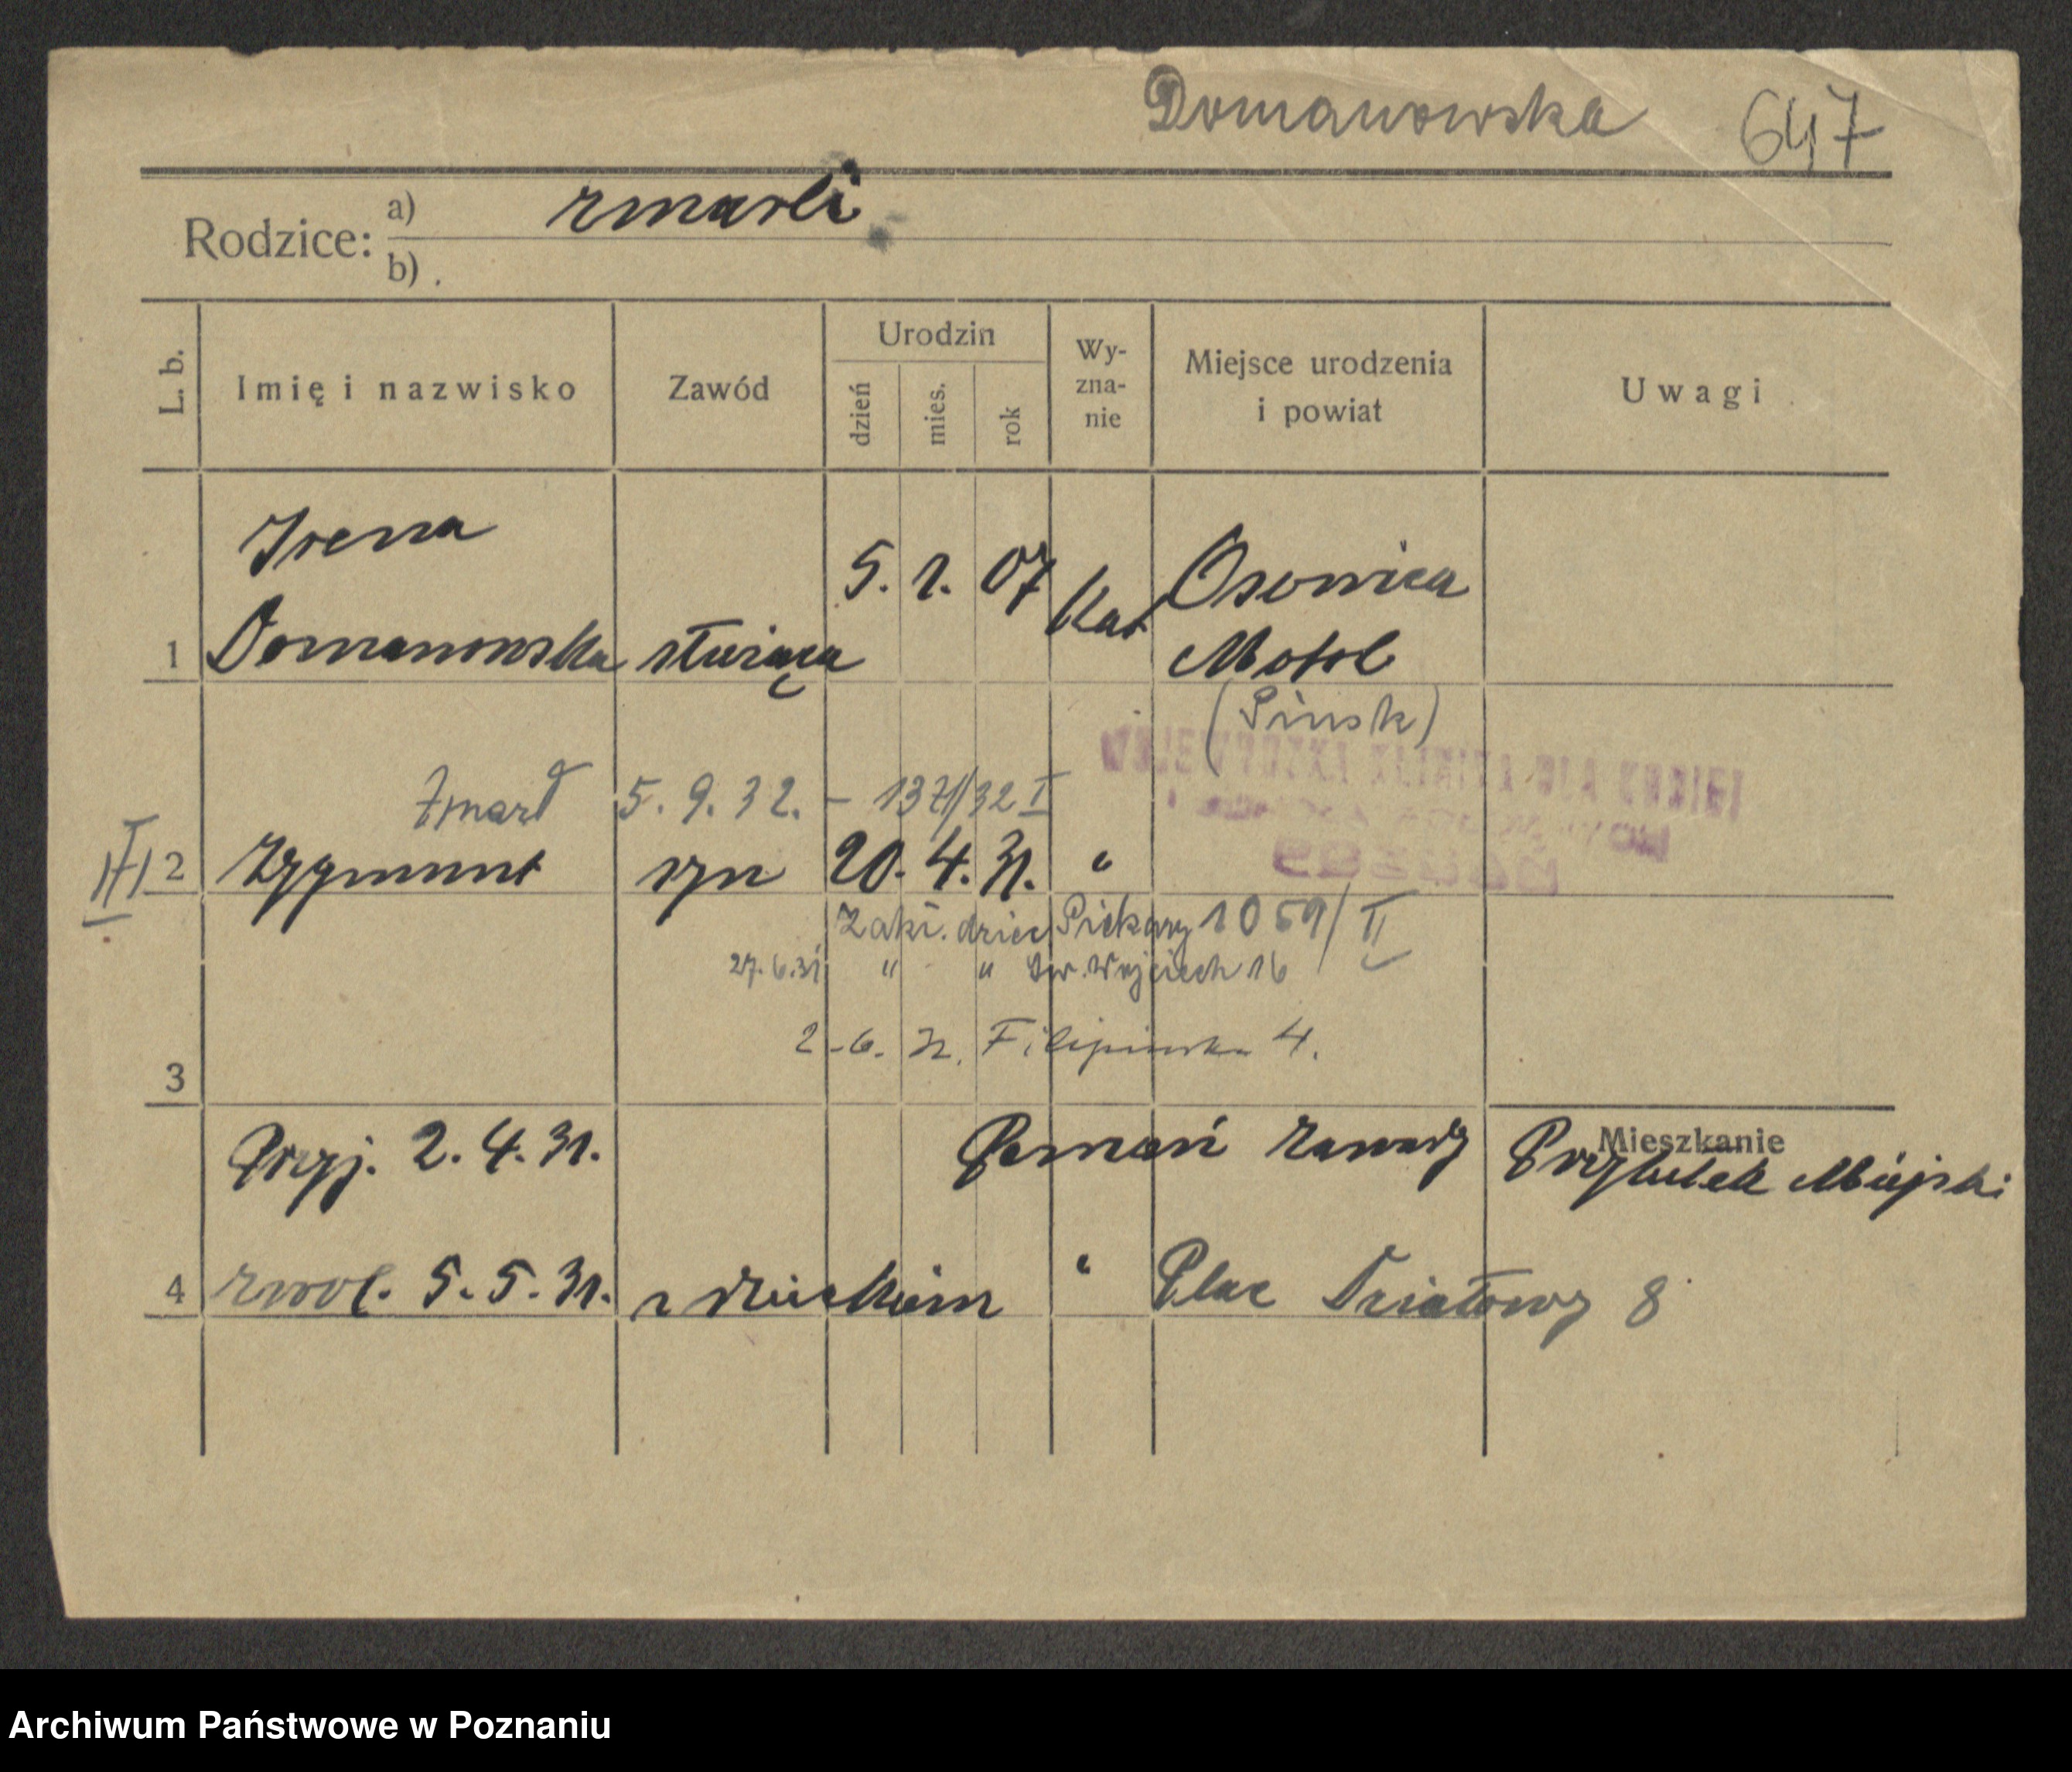 Domanowska 647
Rodzice: a) zmarli
b)
L. b. Imię i nazwisko Zawód Urodzin dzień mies. rok Wy-zna-nie Miejsce urodzenia i powiat Uwagi
Irena
5. 1. 07 Kat Osownica
1 Domanowska służąca Motol
(Pinsk)
WOJEWÓDZKA KLINIKA DLA KOBIET
Zmarł 5. 9. 32. – 1371/32 I
2 Zygmunt syn 20. 4. 31. "
Zakł. dziec Piekary 1059/II
27.6.31 " " Św. Wojciech 16
2-6. 32. Filipinska 4.
3
Mieszkanie
Przyj. 2. 4. 31. Poznań zawady Przytułek Miejski
4 zwol. 5. 5. 31. z dzieckiem " Plac Działowy 8
Archiwum Państwowe w Poznaniu